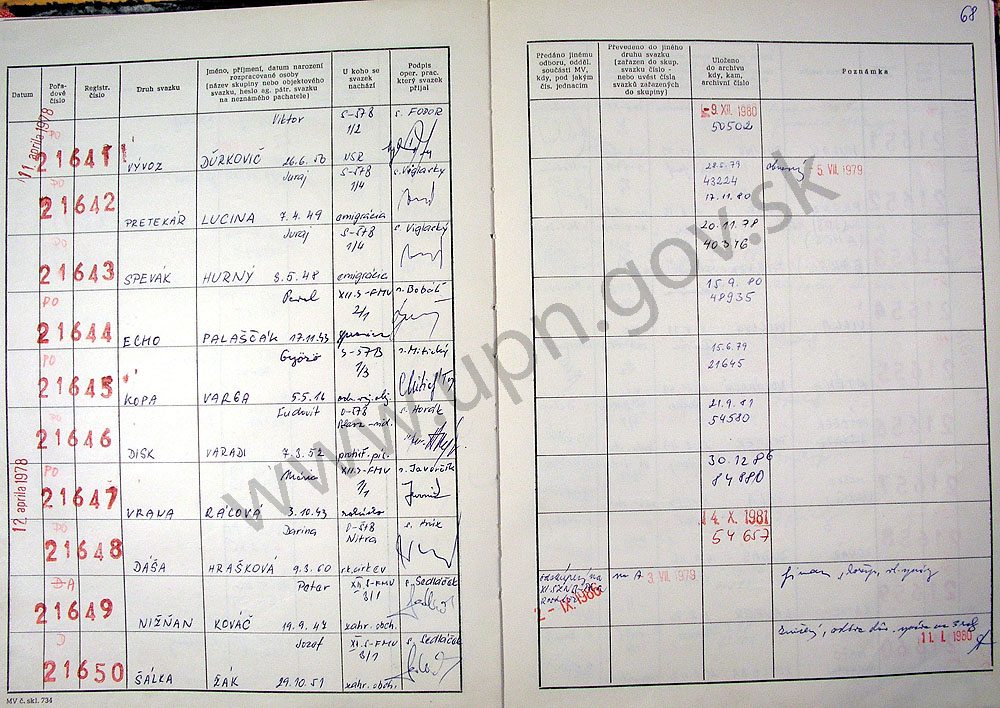 68
Datum
Pořadové číslo
Registr. číslo
Druh svazku
Jméno, příjmení, datum narození
rozpracované osoby
(název skupiny nebo objektového
svazku, heslo ag. pátr. svazku
na neznámého pachatele)
U koho se
svazek
nachází
Podpis
oper. prac.
který svazek
přijal
Předáno jinému
odboru, odděl.
součásti MV,
kdy, pod jakým
čís. jednacím
Převedeno do jiného
druhu svazku
(zařazen do skup.
svazku číslo -
nebo uvést čísla
svazků zařazených
do skupiny)
Uloženo
do archívu
kdy, kam,
archivní číslo
Poznámka
11. apríla 1978
PO
21641
VÝVOZ
Viktor
ĎURKOVIČ 26.6.50
S-ŠTB
1/2
NSR
s. FODOR
-9. XII. 1980
50502
PO
21642
PRETEKÁR
Juraj
LUCINA 7.4.49
S-ŠTB
1/4
emigrácia
s. Viglarky
43224
17.11.80
5. VII. 1979
PO
21643
SPEVÁK
Juraj
HURNÝ 8.5.48
S-ŠTB
1/4
emigrácia
s. Viglarky
20.11.78
PO
21644
ECHO
Pavel
PALAŠČÁK 17.11.43
XII.S-FMV
2/1
s. Bobáš
15.9.80
48935
PO
21645
KOPA
Gyözö
VARGA 5.5.16
S-ŠTB
1/3
15.6.79
21645
PO
21646
DISK
Ľudovít
VARADI 7.3.52
s. Horák
21.9.81
54580
12. apríla 1978
PO
21647
VRANA
Mária
RÁCOVÁ 3.10.43
XII.S-FMV
1/1
30.12.86
84880
PO
21648
DÁŠA
Darina
HRAŠKOVÁ 9.3.60
Nitra
rk. cirkev
14. X. 1981
54657
DA
21649
NIŽŇAN
Peter
KOVÁČ 19.9.47
XII.S-FMV
3/1
zahr. obch.
s. Sedláček
3. VII. 1979
IX. 1986
D
21650
ŠÁLKA
Jozef
ŽÁK 29.10.51
XI.S-FMV
3/1
zahr. obch.
s. Sedláček
11. I. 1980
MV č. skl. 734
www.upn.gov.sk